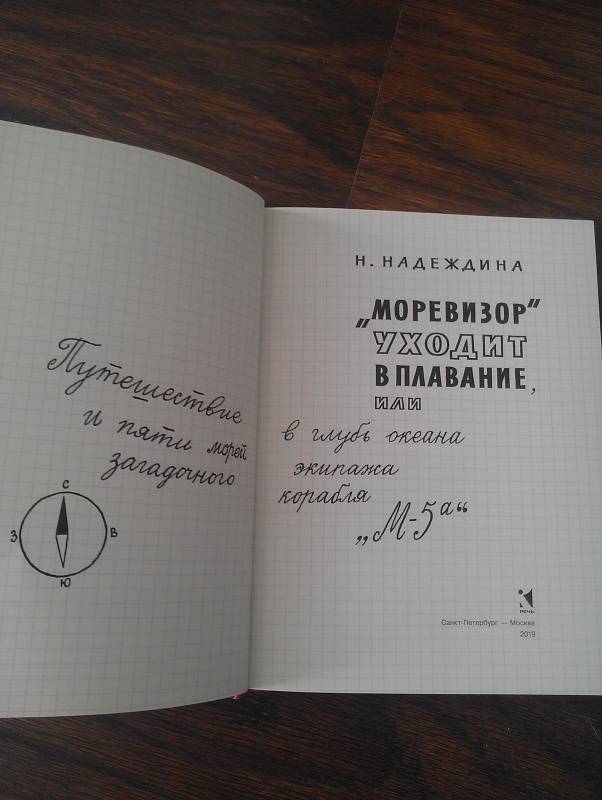 Н. НАДЕЖДИНА
„МОРЕВИЗОР“
УХОДИТ
В ПЛАВАНИЕ,
ИЛИ
Путешествие
в глубь океана
и пяти морей
экипажа
загадочного
корабля
„М-5а“
С
З
В
Ю
РЕЧЬ
Санкт-Петербург — Москва
2019